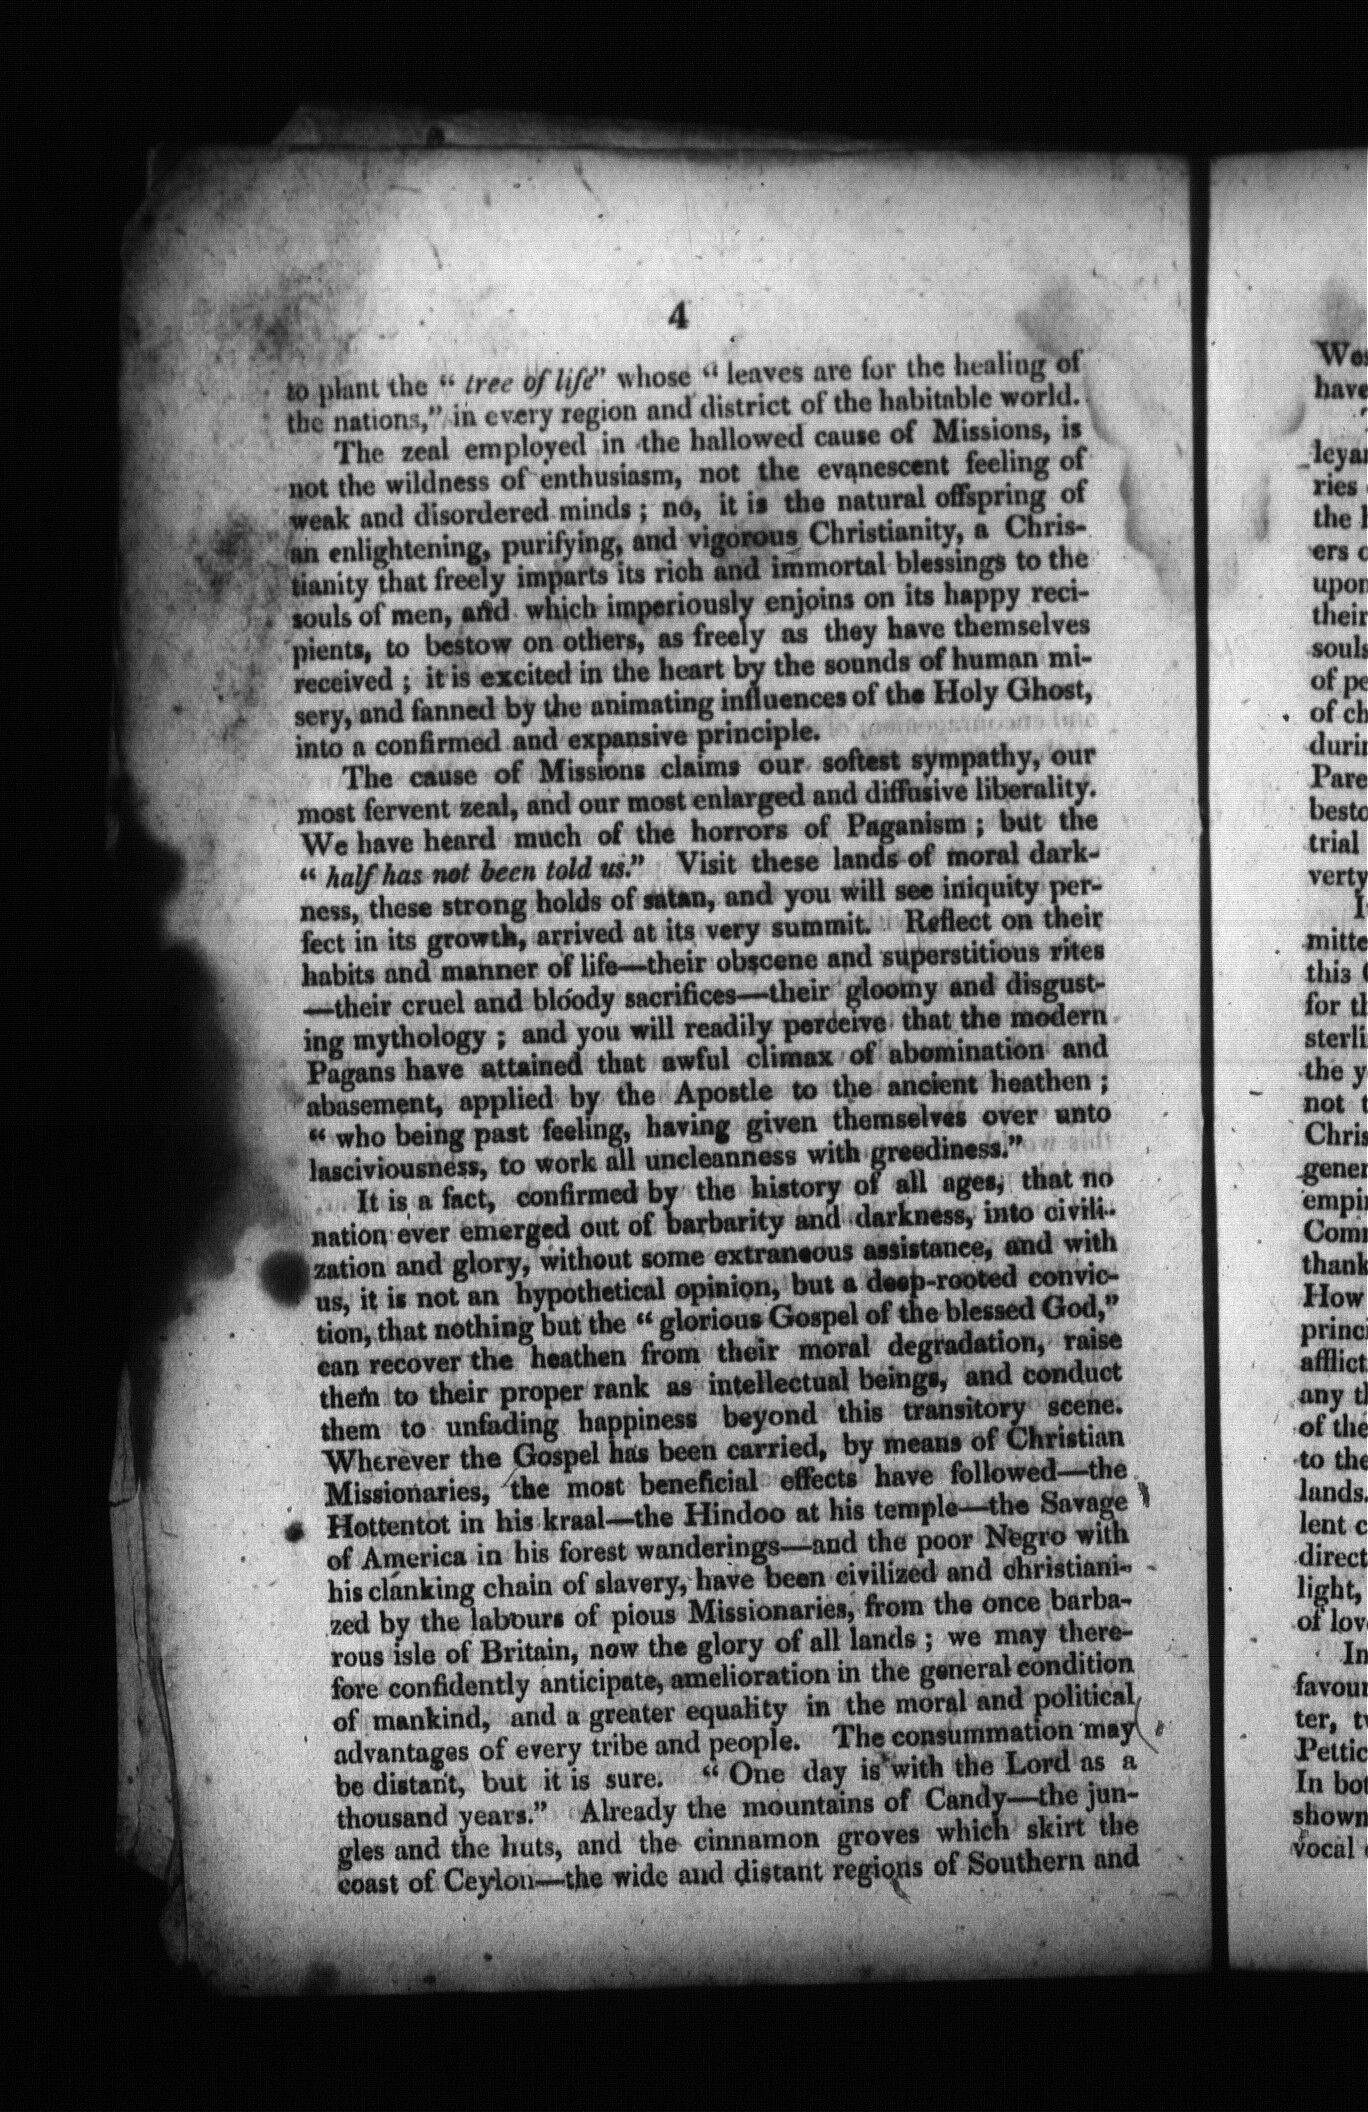 4
to plant the " tree of life" whose " leaves are for the healing of
the nations," in every region and district of the habitable world.
The zeal employed in the hallowed cause of Missions, is
not the wildness of enthusiasm, not the evanescent feeling of
weak and disordered minds ; no, it is the natural offspring of
an enlightening, purifying, and vigorous Christianity, a Chris-
tianity that freely imparts its rich and immortal blessings to the
souls of men, and which imperiously enjoins on its happy reci-
pients, to bestow on others, as freely as they have themselves
received ; it is excited in the heart by the sounds of human mi-
sery, and fanned by the animating influences of the Holy Ghost,
into a confirmed and expansive principle.
The cause of Missions claims our softest sympathy, our
most fervent zeal, and our most enlarged and diffusive liberality.
We have heard much of the horrors of Paganism ; but the
" half has not been told us." Visit these lands of moral dark-
ness, these strong holds of satan, and you will see iniquity per-
fect in its growth, arrived at its very summit. Reflect on their
habits and manner of life—their obscene and superstitious rites
—their cruel and bloody sacrifices—their gloomy and disgust-
ing mythology ; and you will readily perceive that the modern
Pagans have attained that awful climax of abomination and
abasement, applied by the Apostle to the ancient heathen ;
" who being past feeling, having given themselves over unto
lasciviousness, to work all uncleanness with greediness."
It is a fact, confirmed by the history of all ages, that no
nation ever emerged out of barbarity and darkness, into civili-
zation and glory, without some extraneous assistance, and with
us, it is not an hypothetical opinion, but a deep-rooted convic-
tion, that nothing but the " glorious Gospel of the blessed God,"
can recover the heathen from their moral degradation, raise
them to their proper rank as intellectual beings, and conduct
them to unfading happiness beyond this transitory scene.
Wherever the Gospel has been carried, by means of Christian
Missionaries, the most beneficial effects have followed—the
Hottentot in his kraal—the Hindoo at his temple—the Savage
of America in his forest wanderings—and the poor Negro with
his clanking chain of slavery, have been civilized and christiani-
zed by the labours of pious Missionaries, from the once barba-
rous isle of Britain, now the glory of all lands ; we may there-
fore confidently anticipate, amelioration in the general condition
of mankind, and a greater equality in the moral and political
advantages of every tribe and people. The consummation may
be distant, but it is sure. " One day is with the Lord as a
thousand years." Already the mountains of Candy—the jun-
gles and the huts, and the cinnamon groves which skirt the
coast of Ceylon—the wide and distant regions of Southern and
have
the
upon
their
souls
of pe
of ch
trial
this
for th
the y
not t
thank
How
any th
of the
to the
lands.
lent c
direct
light,
of lov
In
ter, tw
In bot
shown
vocal